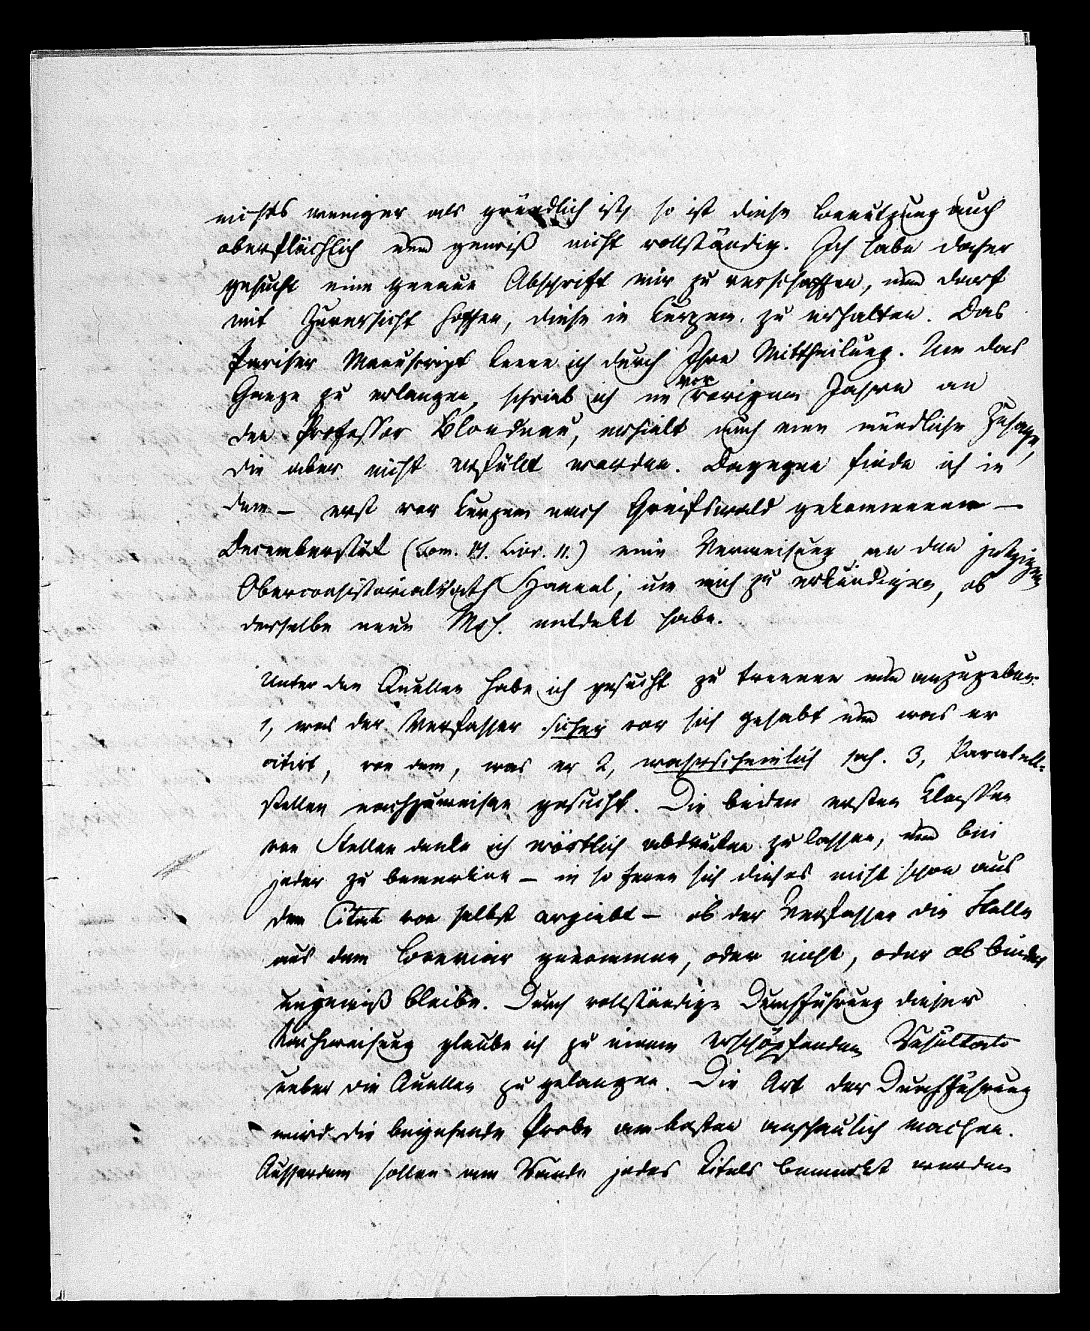 nichts weniger als gründlich ist, so ist diese Benutzung auch
oberflächlich und gewiß nicht vollständig. Ich habe daher
gesucht eine genaue Abschrift mir zu verschaffen, und darf
mit Zuversicht hoffen, diese in kurzem zu erhalten. Das
Pariser Manuscript kenne ich durch Ihre Mittheilung. Um das
Ganze zu erlangen, schrieb ich im vor vorigen Jahre an
den Professor Blondeau, erhielt auch eine mündliche Zusage,
die aber nicht erfüllt worden. Dagegen finde ich in
dem – erst vor kurzem nach Greifswald gekommenen –
Decemberstük (Tom. VI. Livr. 11.) eine Verweisung an den jetzigen
Oberconsistorialrath Haenel, um mich zu erkundigen, ob
derselbe neue Msc. entdekt habe.
Unter den Quellen habe ich gesucht zu trennen und anzugeben
1, was der Verfasser sicher vor sich gehabt und was er
citirt, von dem, was er 2, wahrscheinlich sah. 3, Parallel-
stellen nachzuweisen gesucht. Die beiden ersten Classen
von Stellen denke ich wörtlich abdrucken zu lassen, und bei
jeder zu bemerken – in so ferne sich dieses nicht schon aus
dem Citat von selbst ergiebt – ob der Verfasser die Stelle
aus dem Breviar genommen, oder nicht, oder ob beides
ungewiß bleibe. Durch vollständige Durchführung dieser
Nachweisung glaube ich zu einem erschöpfenden Resultate
ueber die Quellen zu gelangen. Die Art der Durchführung
wird die beigehende Probe am besten anschaulich machen.
Ausserdem sollen am Rande jedes Titels bemerkt werden